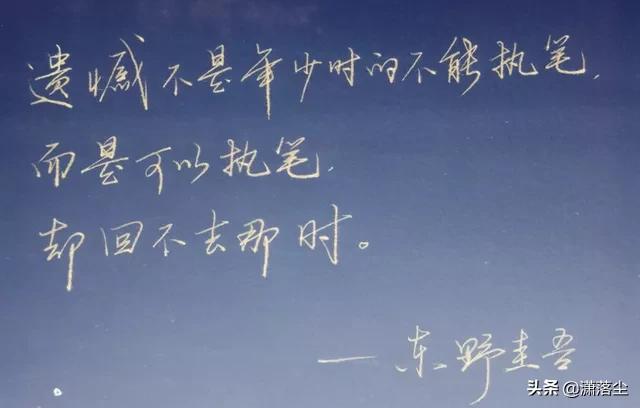 遗憾不是年少时的不能执笔,
而是可以执笔,
却回不去那时。
—东野圭吾
头条 @潇落尘